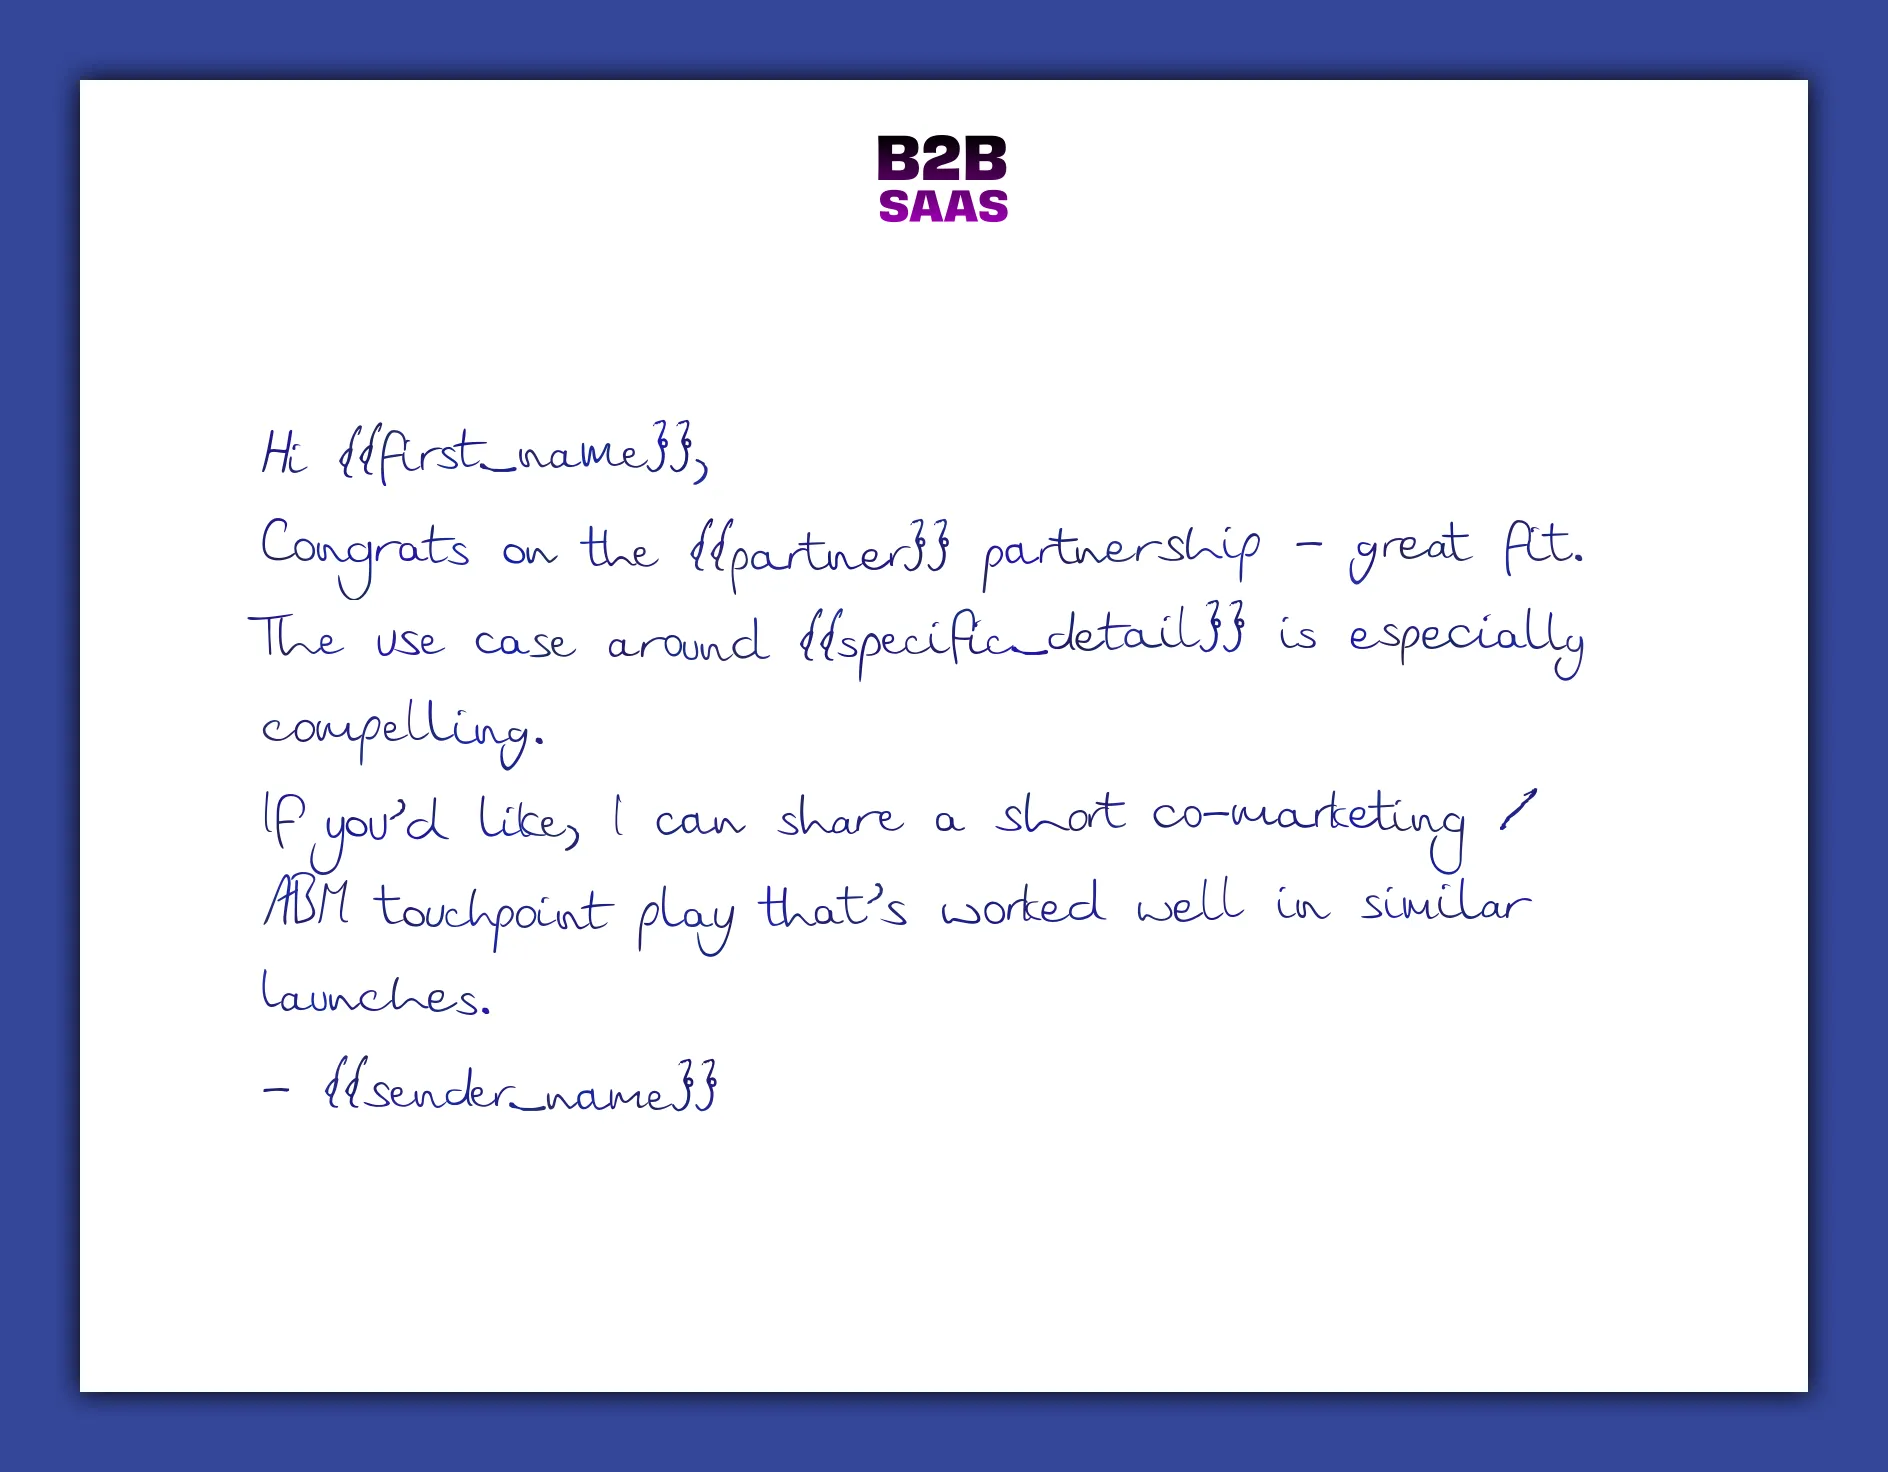 B2B
SAAS
Hi {{first_name}},
Congrats on the {{partner}} partnership - great fit.
The use case around {{specific_detail}} is especially
compelling.
If you'd like, I can share a short co-marketing /
ABM touchpoint play that's worked well in similar
launches.
- {{sender_name}}